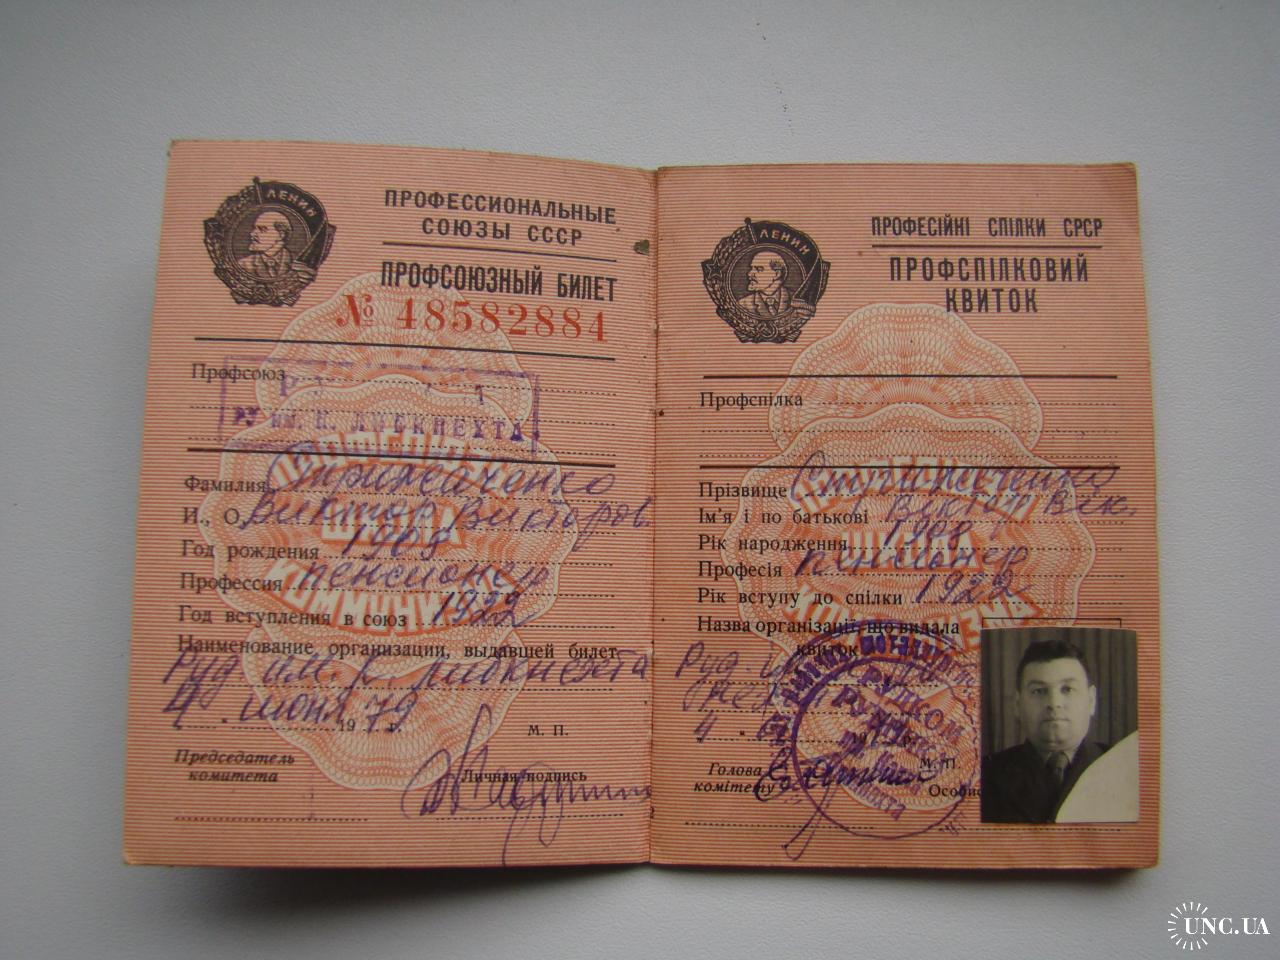 ЛЕНИН
ПРОФЕССИОНАЛЬНЫЕ
СОЮЗЫ СССР
ПРОФСОЮЗНЫЙ БИЛЕТ
№ 48582884
Профсоюз
РУ ИМ. К. ЛИБКНЕХТА
Фамилия Стрижаченко
И., О. Виктор Викторов.
Год рождения 1908
Профессия пенсионер
Год вступления в союз 1922
Наименование организации, выдавшей билет
Руд им. К. Либкнехта
4 июня 1979 г.
М. П.
Председатель
комитета
Личная подпись
ЛЕНИН
ПРОФЕСІЙНІ СПІЛКИ СРСР
ПРОФСПІЛКОВИЙ
КВИТОК
Профспілка
Прізвище Стрижаченко
Ім'я і по батькові Віктор Вік.
Рік народження 1908
Професія пенсионер
Рік вступу до спілки 1922
Назва організації, що видала
квиток
Руд.
4
РУДКОМ
М. П.
Голова
комітету
Особис
UNC.UA